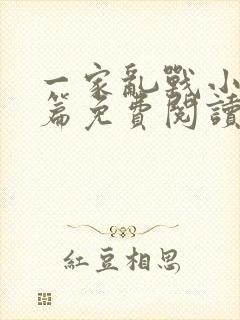 一家亂戰小
篇免費閱讀
紅豆相思